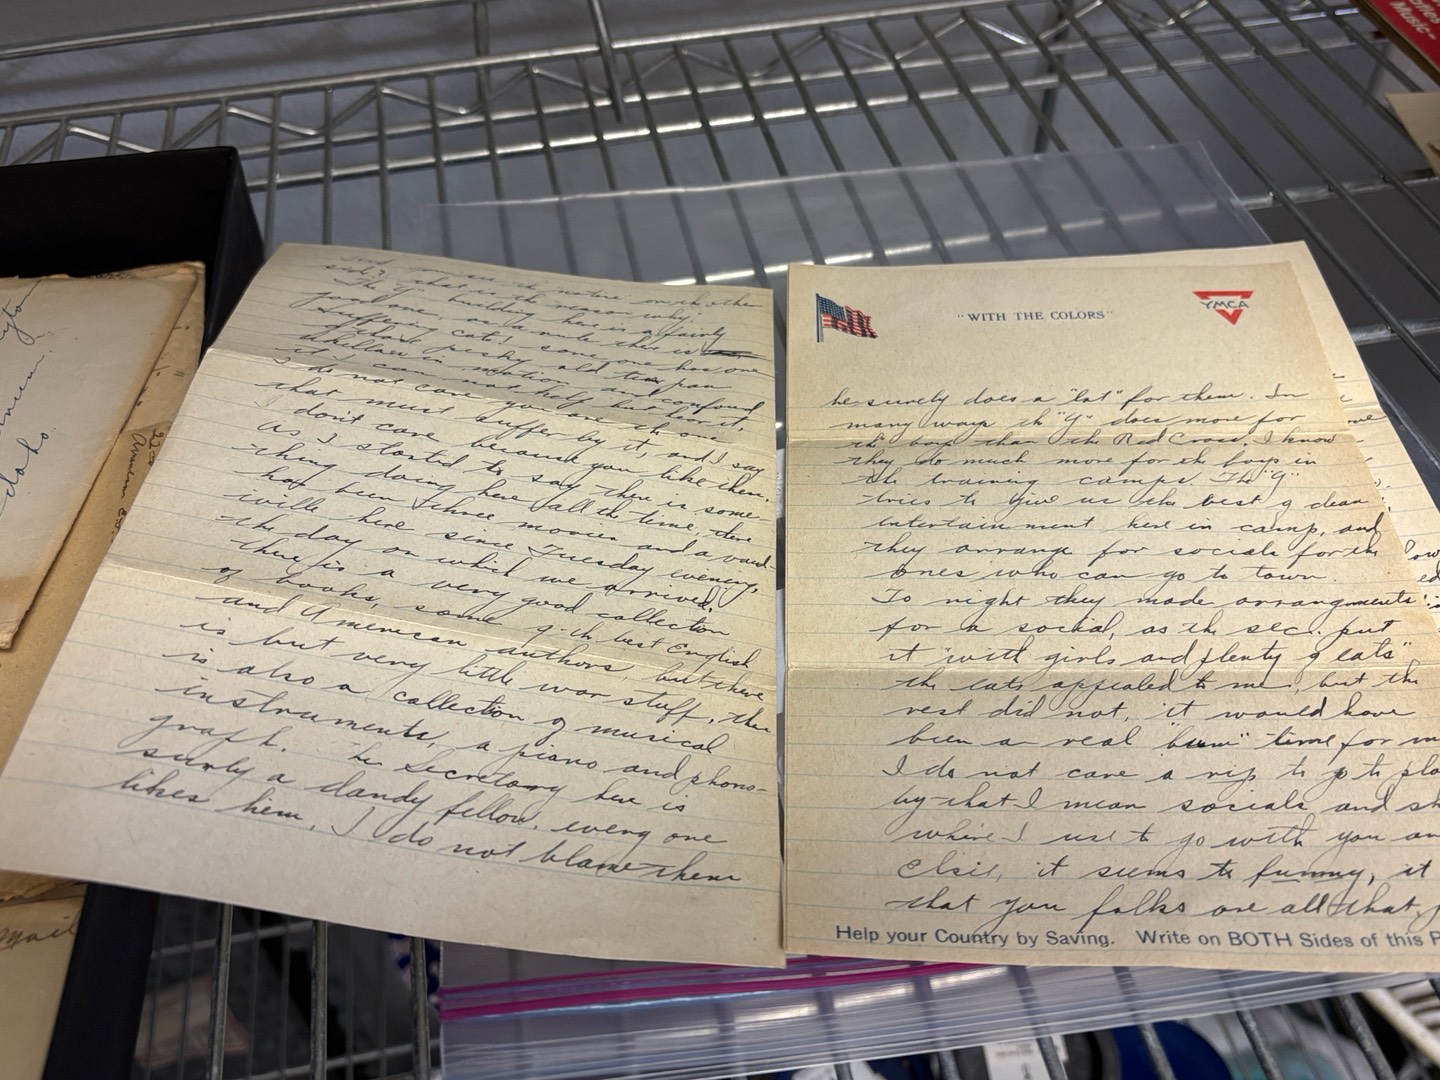 Did you see the notice on the other
side? that is the reason why.
The "Y" building here is a fairly
good one, as a rule there is
suffering cats! some one has one
of those pesky old tin pan
ukellaes in motion, and confound
it I can not help but hear it,
I do not care you are the one
that must suffer by it, and I say
don't care because you like them.
As I started to say there is some-
thing doing here all the time, there
has been three movies and a vaud-
iville here since Tuesday evening,
the day on which we arrived.
there is a very good collection
of books, some of the best English
and American authors, but there
is but very little war stuff, there
is also a collection of musical
instruments, a piano and phono-
graph. The Secretary here is
surely a dandy fellow, every one
likes him, I do not blame them
"WITH THE COLORS"
YMCA
he surely does a "lot" for them. In
many ways the "Y" does more for
the boys than the Red Cross, I know
they do much more for the boys in
the training camps. The "Y"
tries to give us the best of clean
entertainment here in camp, and
they arrange for socials for the
ones who can go to town.
To night they made arrangements
for a social, as the sec. put
it "with girls and plenty of eats"
the eats appealed to me, but the
rest did not, it would have
been a real "bum" time for m
I do not care a rip to go to pla
by that I mean socials and sh
where I use to go with you an
Elsie, it seems to funny, it
that you folks are all that
Help your Country by Saving. Write on BOTH Sides of this P
daho.
mail
Music-